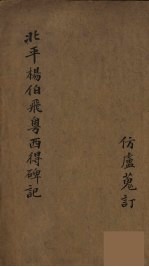 北平楊伯飛粵西得碑記
仿盧蒐訂